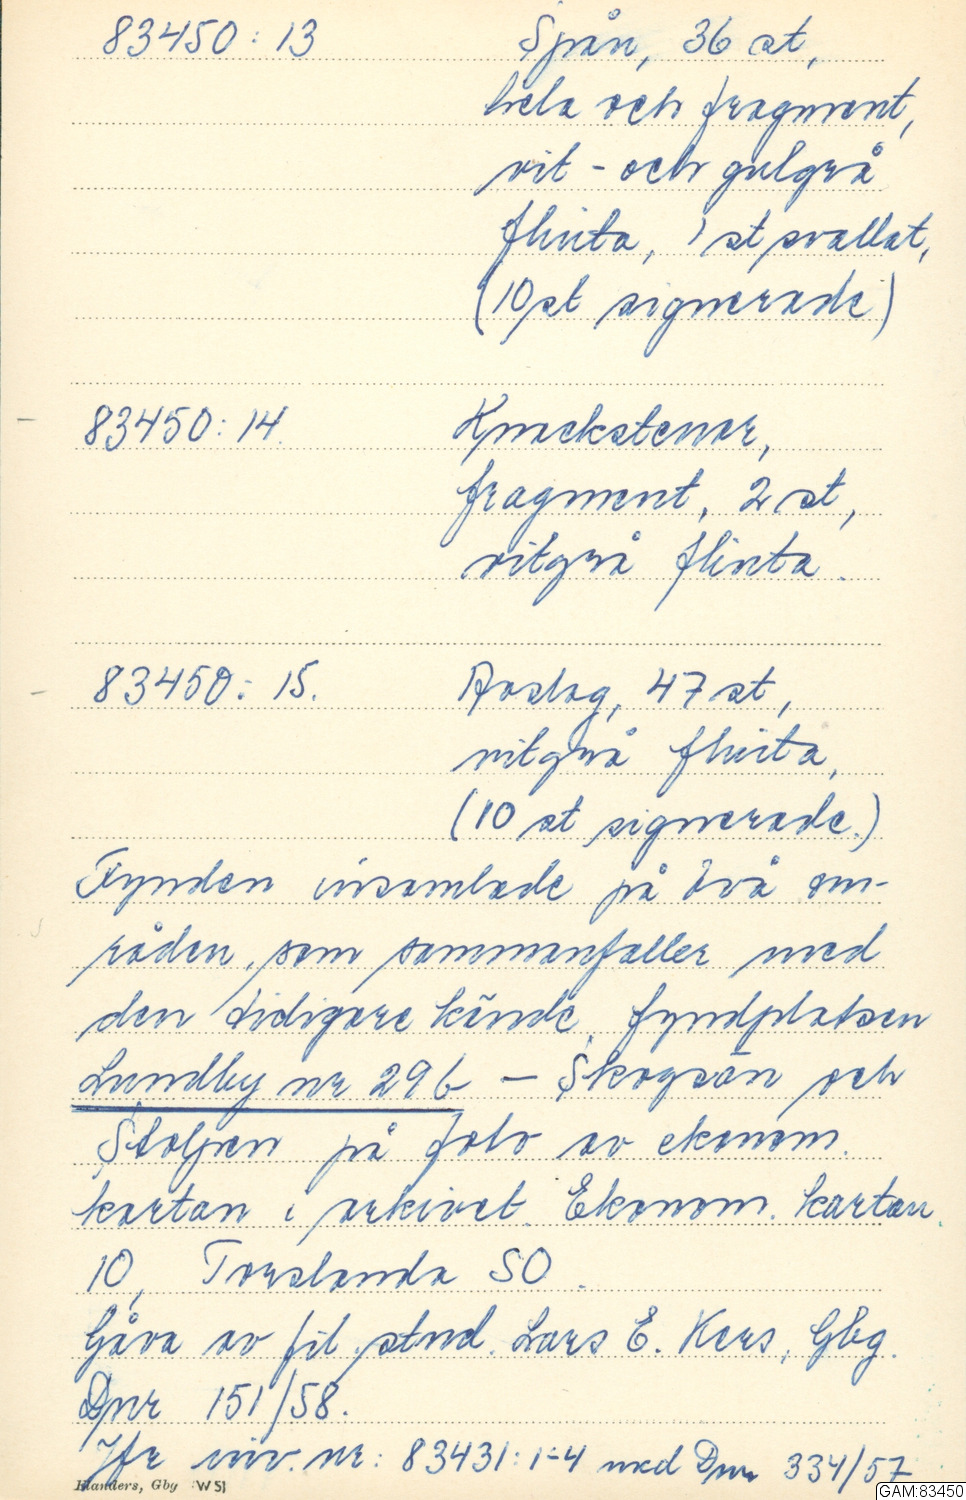 83450:13 Spån, 36 st,
hela och fragment,
vit- och gulgrå
flinta, 1 st svallat,
(10 st signerade)
83450:14. Knackstenar,
fragment, 2 st,
vitgrå flinta.
83450:15. Avslag, 47 st,
vitgrå flinta,
(10 st signerade.)
Fynden insamlade på två om-
råden, som sammanfaller med
den tidigare kände fyndplatsen
Lundby nr 296 – Skogsän och
Stolpen på foto av ekonom.
kartan i arkivet. Ekonom. kartan
10, Torslanda SO.
Gåva av fil. stud. Lars E. Kers, Gbg.
Dnr 151/58.
Jfr inv. nr: 83431:1-4 med Dnr 334/57
Elanders, Gby W51
GAM:83450